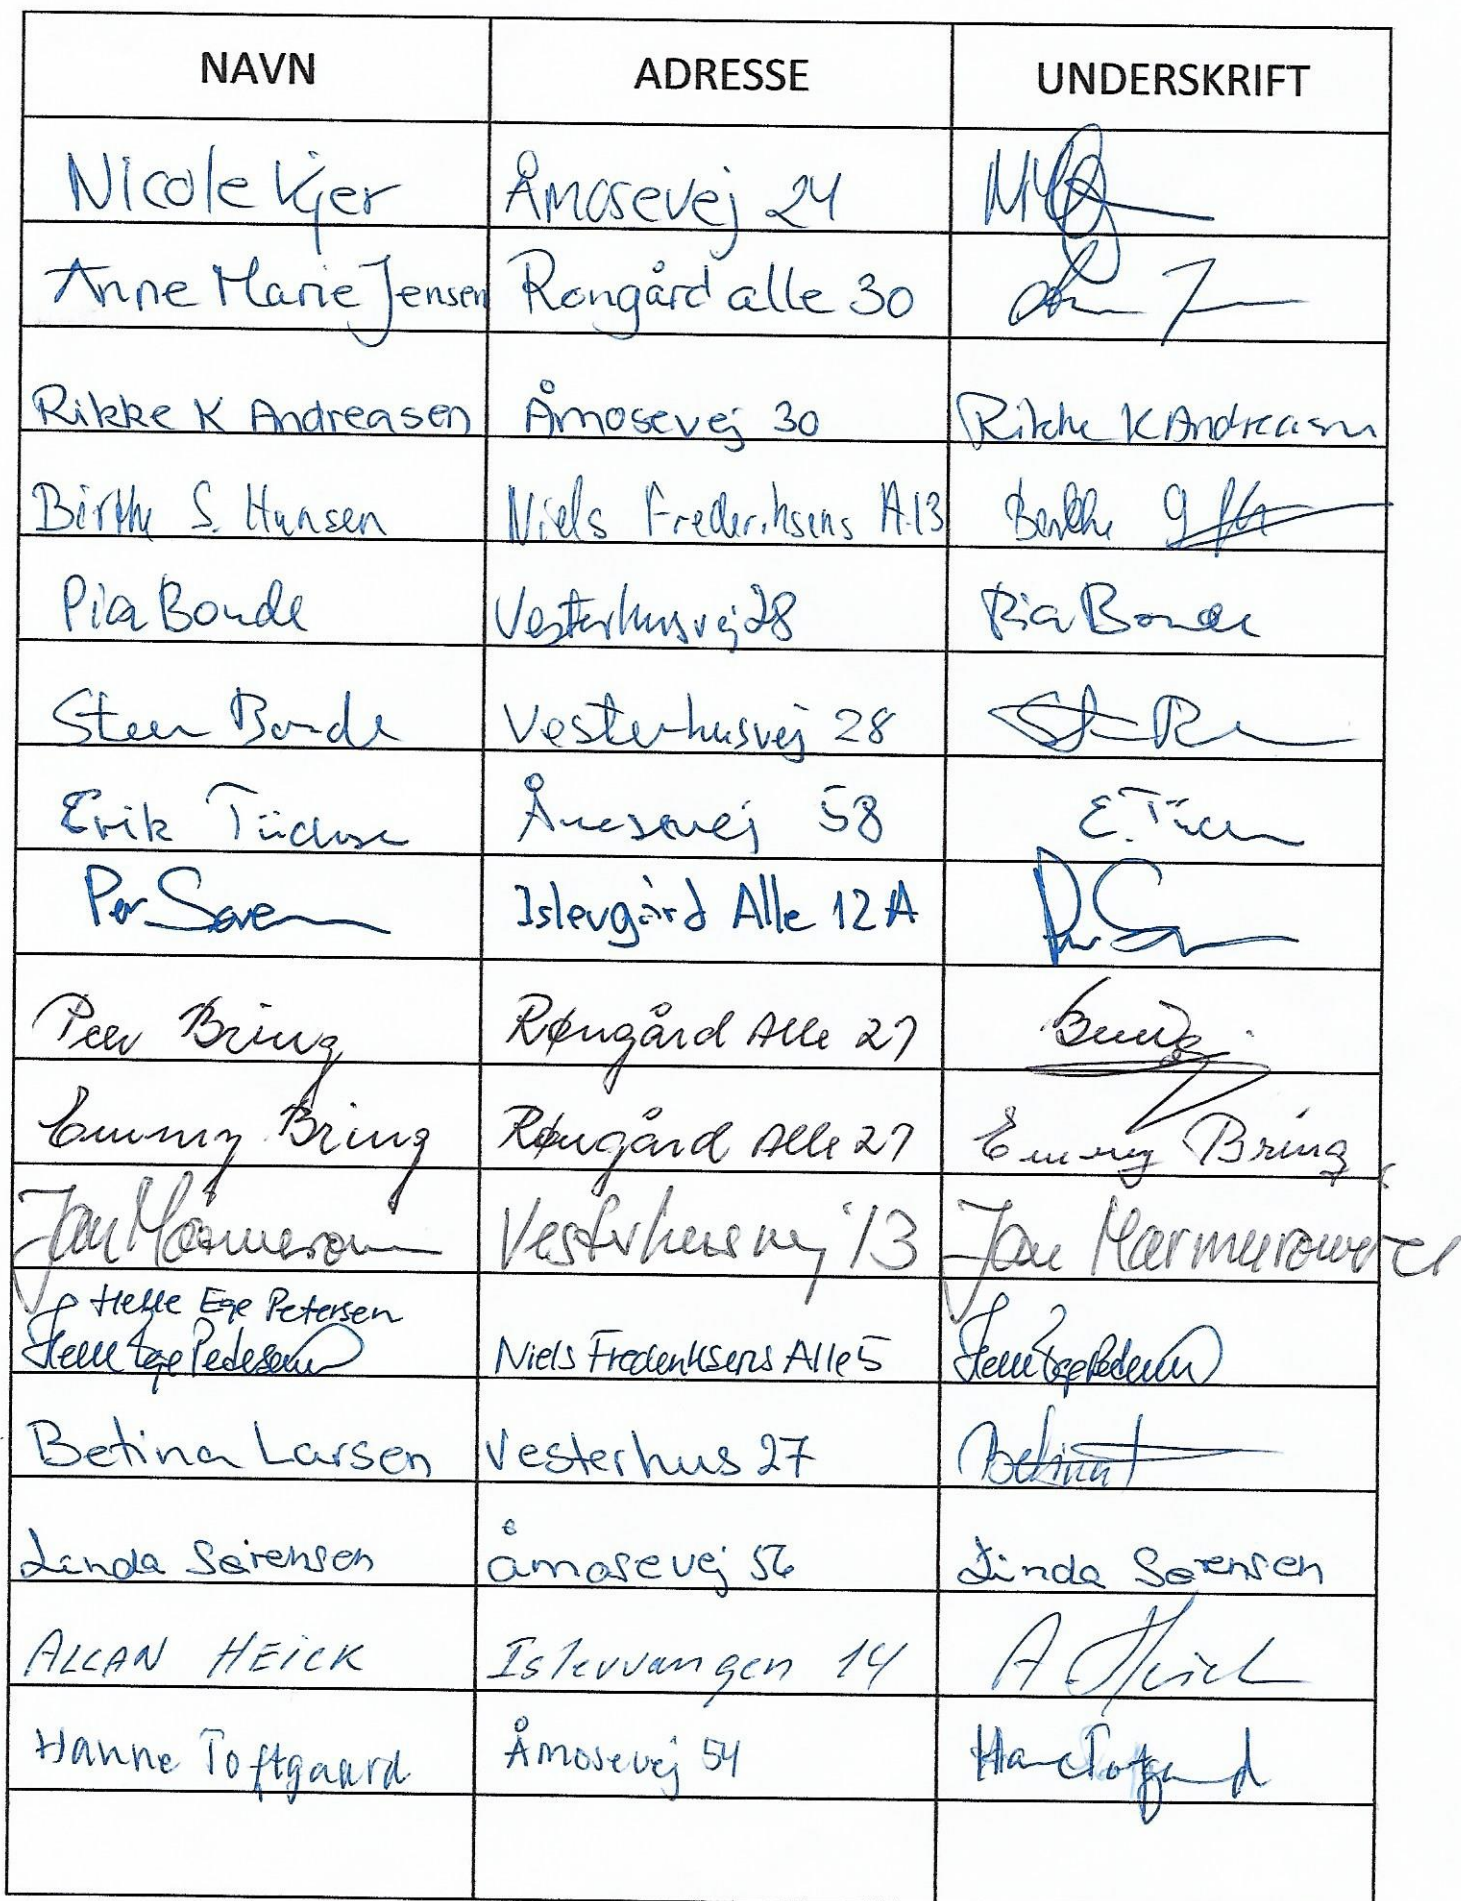 NAVN ADRESSE UNDERSKRIFT
Nicole Kjer Åmosevej 24
Anne Marie Jensen Rongård alle 30
Rikke K Andreasen Åmosevej 30 Rikke K Andreasen
Birthe S. Hansen Niels Frederiksens A.13 Birthe
Pia Bonde Vesterhusvej 28 Pia Bonde
Steen Bonde Vesterhusvej 28
Erik Åmosevej 58 E.
Per Islevgård Alle 12A
Peer Bring Røngård Alle 27 Bring
Emmy Bring Røngård Alle 27 Emmy Bring
Jan Vesterhusvej 13 Jan
Helle Ege Petersen
Helle Ege Petersen Niels Frederiksens Alle 5 Helle Ege Petersen
Betina Larsen Vesterhus 27 Betina
Linda Sørensen Åmosevej 56 Linda Sørensen
ALLAN HEICK Islevvangen 14 A. Heick
Hanne Toftgaard Åmosevej 54 Hanne Toftgaard